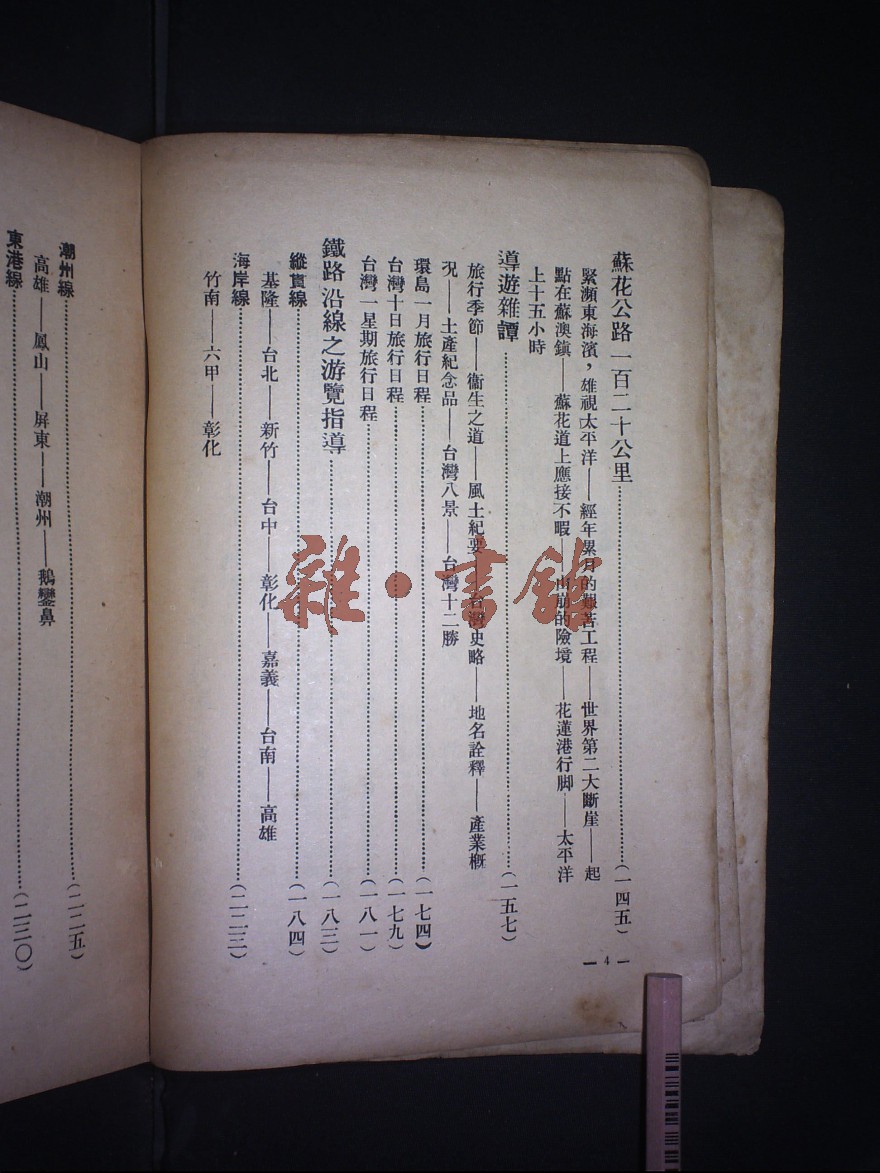 蘇花公路一百二十公里……(一四五)
緊瀕東海濱，雄視太平洋——經年累月的艱苦工程——世界第二大斷崖——起
點在蘇澳鎮——蘇花道上應接不暇——山崩的險境——花蓮港行脚——太平洋
上十五小時
導遊雜譚……(一五七)
旅行季節——衞生之道——風土紀要——台灣史略——地名詮釋——產業概
況——土產紀念品——台灣八景——台灣十二勝
環島一月旅行日程……(一七四)
台灣十日旅行日程……(一七九)
台灣一星期旅行日程……(一八一)
鐵路沿線之游覽指導……(一八三)
縱貫線……(一八四)
基隆——台北——新竹——台中——彰化——嘉義——台南——高雄
海岸線……(二二三)
竹南——六甲——彰化
— 4 —
潮州線……(二二五)
高雄——鳳山——屏東——潮州——鵝鑾鼻
東港線……(二三〇)
雜·書館